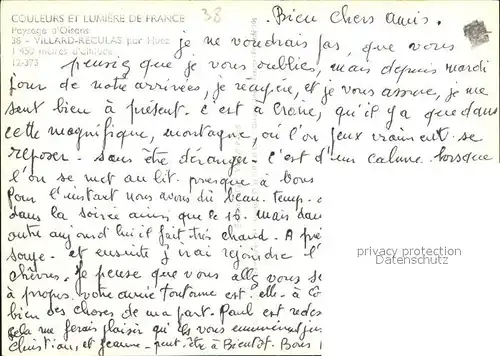 COULEURS ET LUMIÈRE DE FRANCE
38
Bien chers amis.
Paysage d'Oisans
38 - VILLARD-RECULAS par Huez
1 450 mètres d'altitude
12-373
je ne voudrais pas, que vous
pensiez que je vous oublies, mais depuis mardi
jour de notre arrivées, je réagie, et je vous assure, je me
sent bien à présent. c'est à croire, qu'il y a que dans
cette magnifique, montagne, où l'on peux vraiment se
reposer. sans être déranger. c'est d'un calme. lorsque
l'on se met au lit. presque à
Pour l'instant nous avons du beau. temp.
dans la soirée ainsi que le 16. mais dans
outre aujourd'hui il fait très chaud. A
et ensuite j'irai rejoindre l'
chèvres. Je pense que vous allez vous
à propos. votre amie toutoune est. elle. à
bien des choses de ma part. Paul est
cela me ferais plaisir qu'ils vous
Christian, et Jeanne. peut. être à Bientôt. Bons
privacy protection
Datenschutz